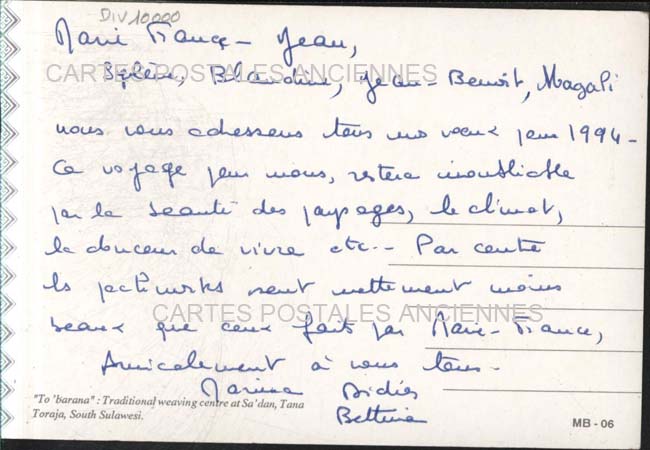 DIV 10000
Marie France - Jean,
CARTES POSTALES ANCIENNES
Blandine, Jean-Benoit, Magali
nous vous adressons tous nos vœux pour 1994 -
Ce voyage pour nous, restera inoubliable
par la beauté des paysages, le climat,
la douceur de vivre etc.. Par contre
les patchworks sont nettement moins
CARTES POSTALES ANCIENNES
beaux que ceux faits par Marie-France,
Amicalement à vous tous -
Marina Didier
Bettina
"To 'barana" : Traditional weaving centre at Sa'dan, Tana
Toraja, South Sulawesi.
MB - 06